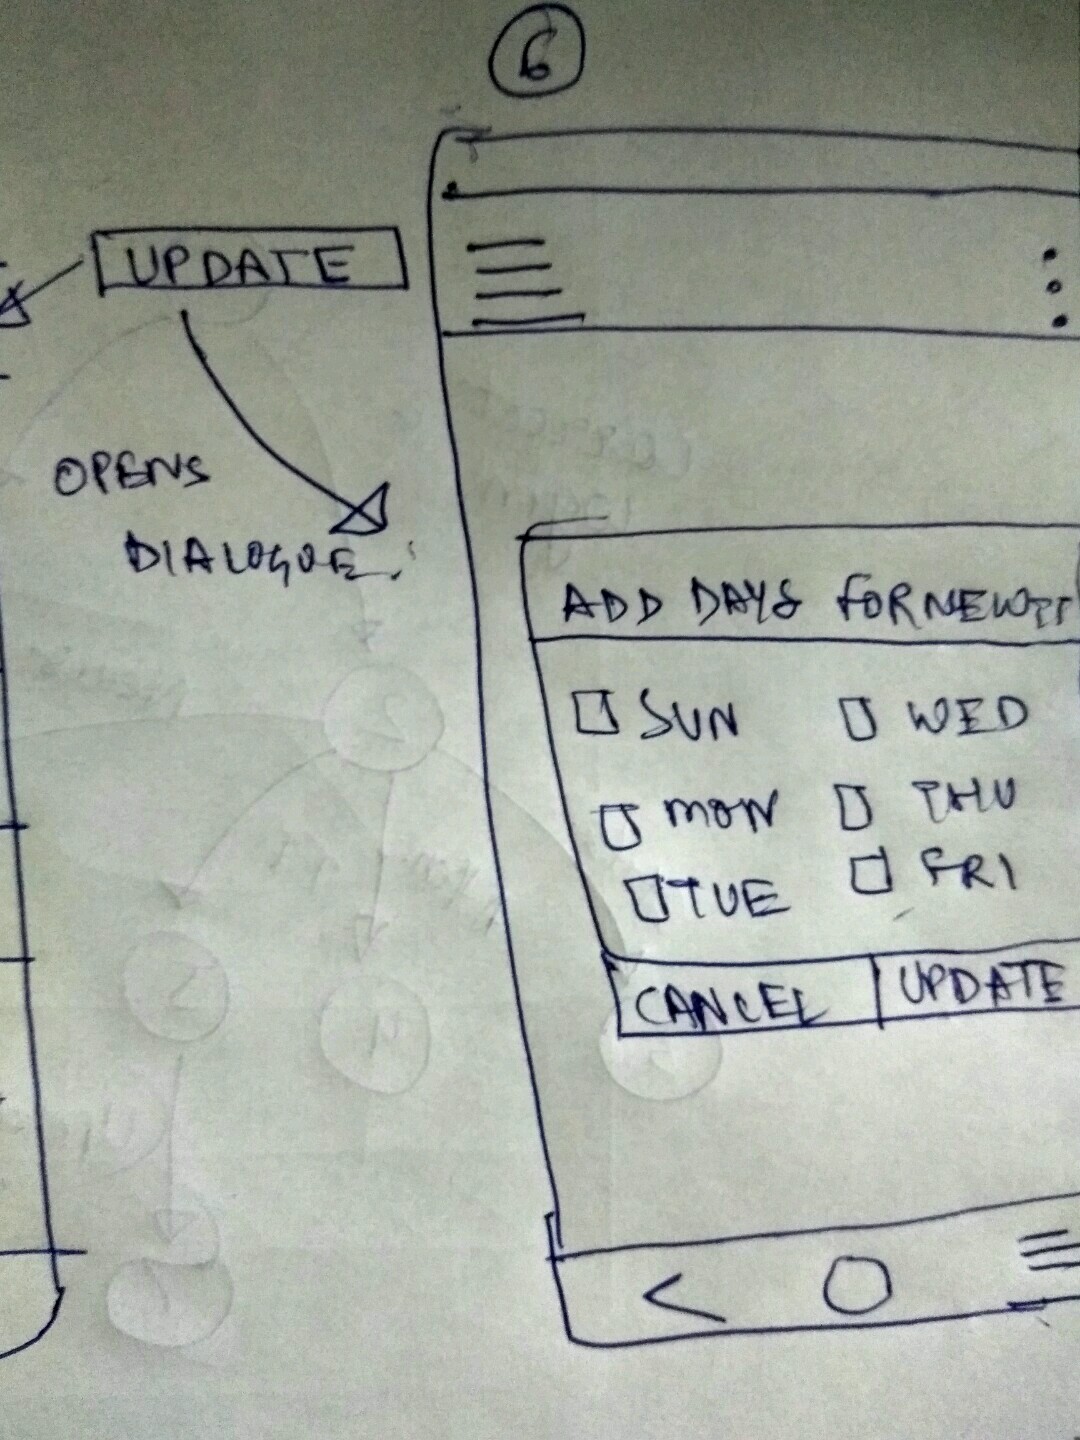 6
UPDATE
OPENS
DIALOGUE
ADD DAYS FOR
SUN
WED
MON
THU
TUE
FRI
CANCEL
UPDATE